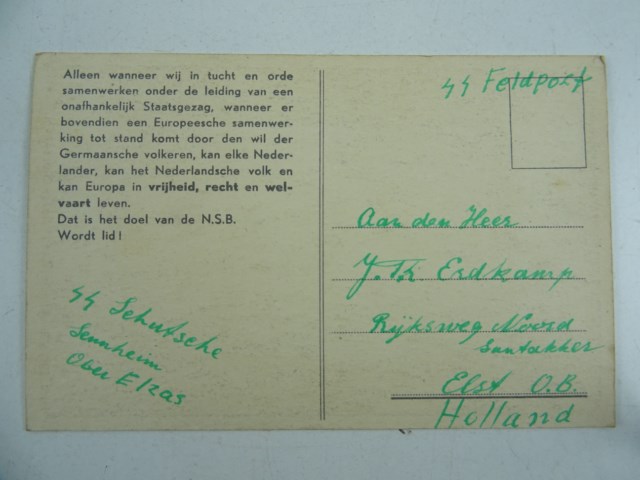 Alleen wanneer wij in tucht en orde
samenwerken onder de leiding van een
onafhankelijk Staatsgezag, wanneer er
bovendien een Europeesche samenwer-
king tot stand komt door den wil der
Germaansche volkeren, kan elke Neder-
lander, kan het Nederlandsche volk en
kan Europa in vrijheid, recht en wel-
vaart leven.
Dat is het doel van de N.S.B.
Wordt lid!
SS Schutsche
Sennheim
Ober Elzas
SS Feldpost
Aan den Heer
J. Th. Erdkamp
Rijksweg Noord
Elst O.B.
Holland